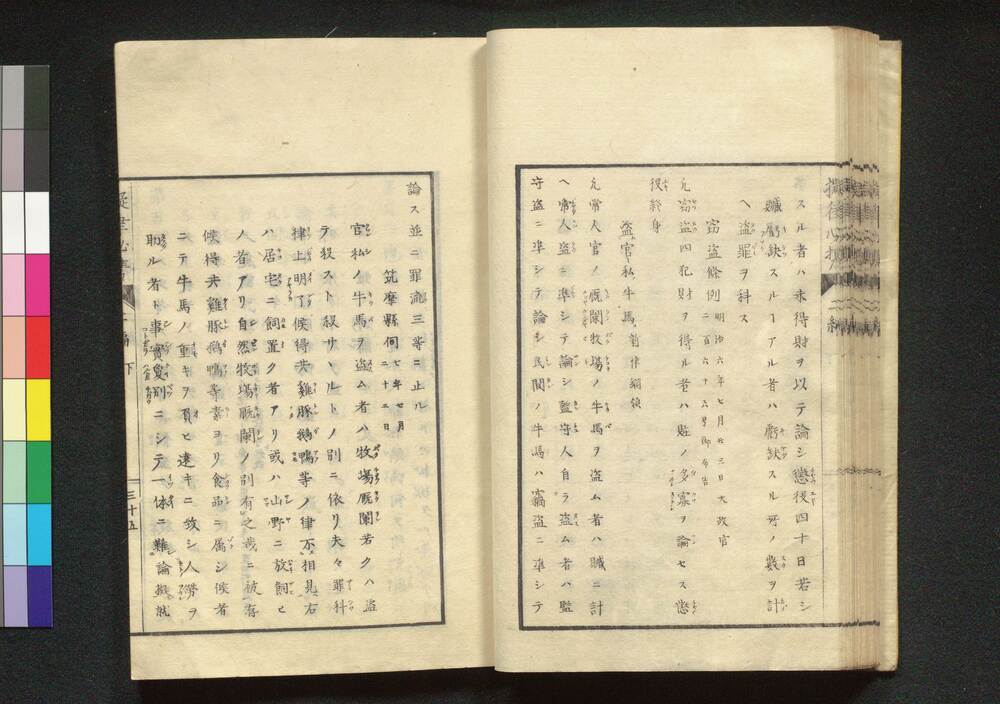 スル者ハ未得財ヲ以テ論シ懲役四十日若シ
贓虧缺スルヿアル者ハ虧缺スル所ノ数ヲ計
ヘ盗罪ヲ科ス
竊盗條例 明治六年七月廿三日太政官二百六十六号御布告
凡竊盗四犯財ヲ得ル者ハ贓ノ多寡ヲ論セス懲
役終身
盗官私牛馬 創作綱領
凡常人官ノ厩闌牧場ノ牛馬ヲ盗ム者ハ贓ニ計
ヘ常人盗ニ準シテ論シ監守人自ラ盗ム者ハ監
守盗ニ準シテ論シ民間ノ牛馬ハ竊盗ニ準シテ
論ス並ニ罪流三等ニ止ル
筑摩縣伺 七年七月二十二日
官私ノ牛馬ヲ盗ム者ハ牧場厩闌若クハ盗
テ殺スト殺サヽルトノ別ニ依リ夫々罪科
律上明了候得共雞豚鵝鴨等ノ律不相見右
ハ居宅ニ飼置ク者アリ或ハ山野ニ放飼ヒ
ノ者アリ自然牧場厩闌ノ別有之哉ニ被存
候得共雞豚鵝鴨等素ヨリ食品ニ属シ候者
ニテ牛馬ノ重キヲ負ヒ遠キニ致シ人勞ヲ
助ル者ト事實夐別ニシテ一体ニ難論擬就
下
三十五